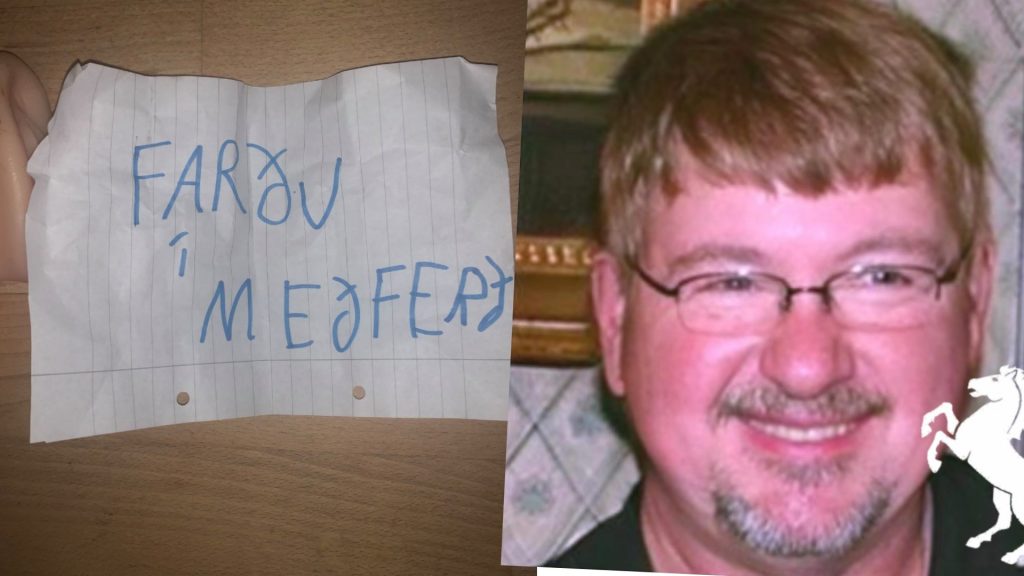 FARÐU
Í
MEÐFERÐ